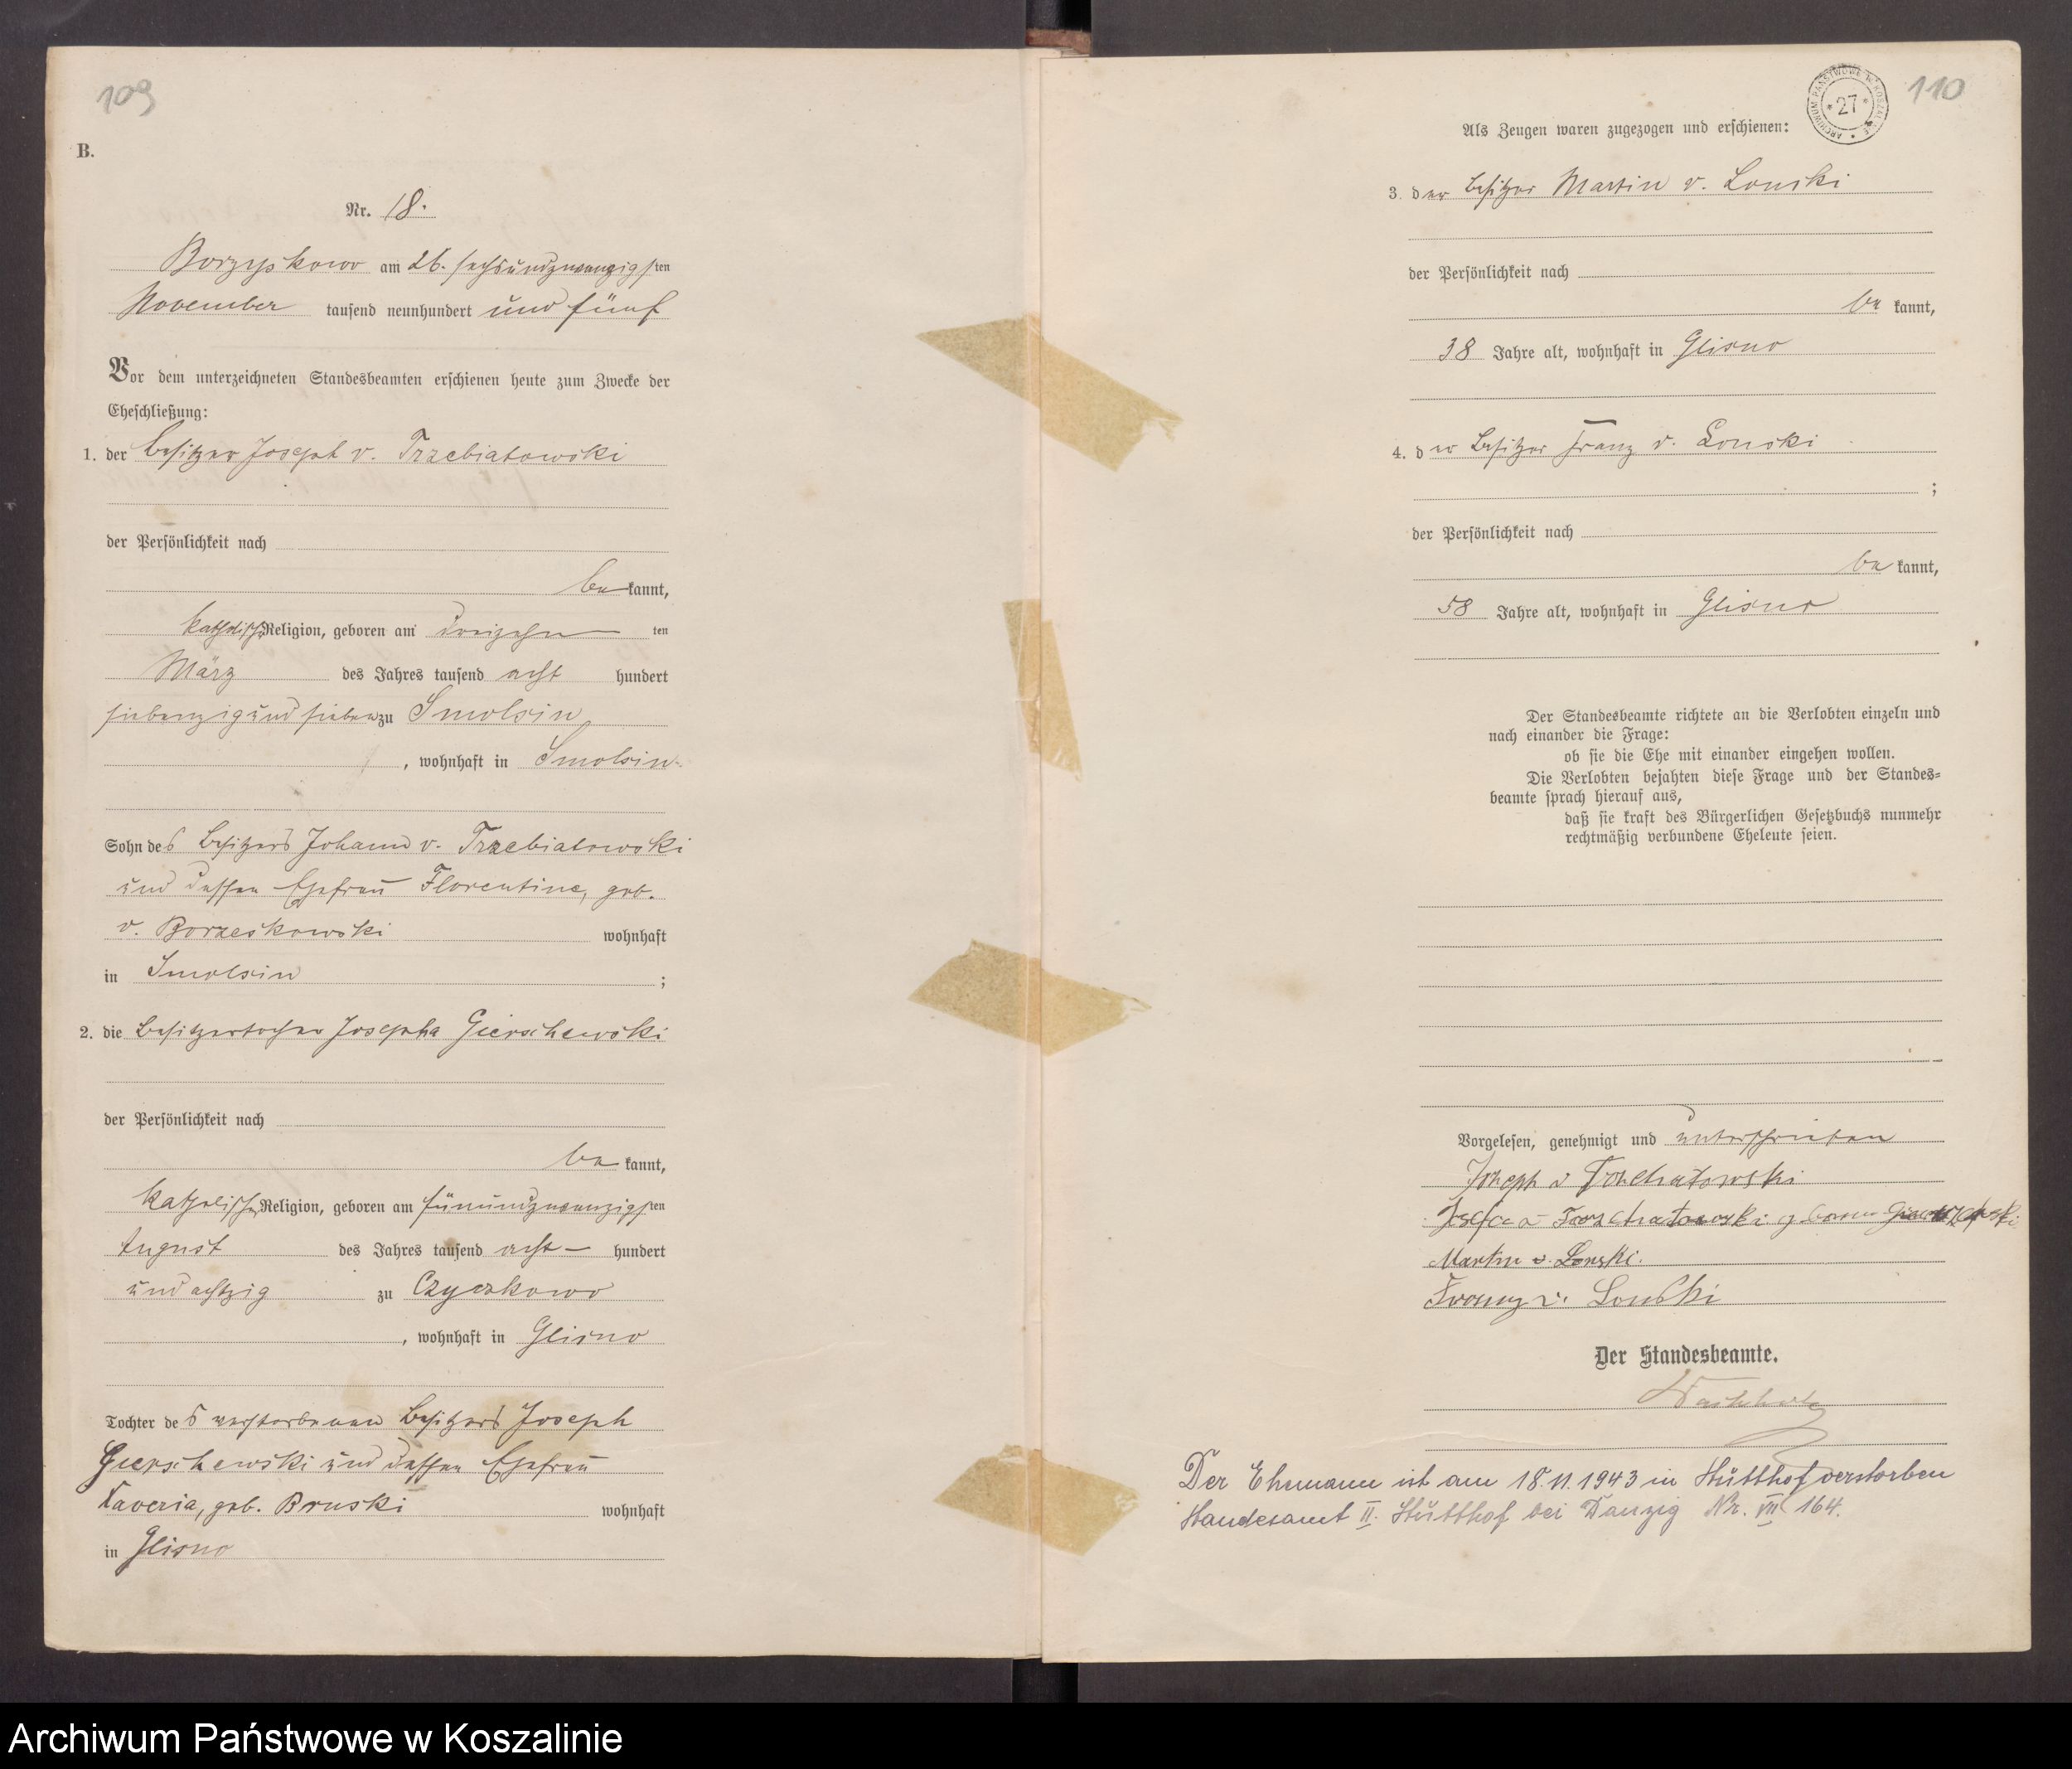 109
B.
Nr. 18.
Borzyskowo am 26. sechsundzwanzigsten
November tausend neunhundert und fünf
Vor dem unterzeichneten Standesbeamten erschienen heute zum Zwecke der
Eheschließung:
1. der Besitzer Joseph v. Trzebiatowski
der Persönlichkeit nach
be kannt,
katholischer Religion, geboren am dreizehn ten
März des Jahres tausend acht hundert
siebenzig und sieben zu Smolsin
, wohnhaft in Smolsin
Sohn des Besitzers Johann v. Trzebiatowski
und dessen Ehefrau Florentine, geb.
v. Borzeskowski wohnhaft
in Smolsin ;
2. die Besitzertochter Josepha Gierschewski
der Persönlichkeit nach
be kannt,
katholischer Religion, geboren am fünundzwanzigsten
August des Jahres tausend acht hundert
und achtzig zu Czyczkowo
, wohnhaft in Glisno
Tochter des verstorbenen Besitzers Joseph
Gierschewski und dessen Ehefrau
Xaveria, geb. Bruski wohnhaft
in Glisno
110
ARCHIWUM PAŃSTWOWE W KOSZALINIE * 27 *
Als Zeugen waren zugezogen und erschienen:
3. der Besitzer Martin v. Lonski
der Persönlichkeit nach
be kannt,
38 Jahre alt, wohnhaft in Glisno
4. der Besitzer Franz v. Lonski
;
der Persönlichkeit nach
be kannt,
58 Jahre alt, wohnhaft in Glisno
Der Standesbeamte richtete an die Verlobten einzeln und
nach einander die Frage:
ob sie die Ehe mit einander eingehen wollen.
Die Verlobten bejahten diese Frage und der Standes-
beamte sprach hierauf aus,
daß sie kraft des Bürgerlichen Gesetzbuchs nunmehr
rechtmäßig verbundene Eheleute seien.
Vorgelesen, genehmigt und unterschrieben
Joseph v Trzebiatowski
Martin v. Lonski.
Franz v. Lonski
Der Standesbeamte.
Der Ehemann ist am 18.11.1943 in Stutthof verstorben
Standesamt II. Stutthof bei Danzig Nr. VIII 164.
Archiwum Państwowe w Koszalinie